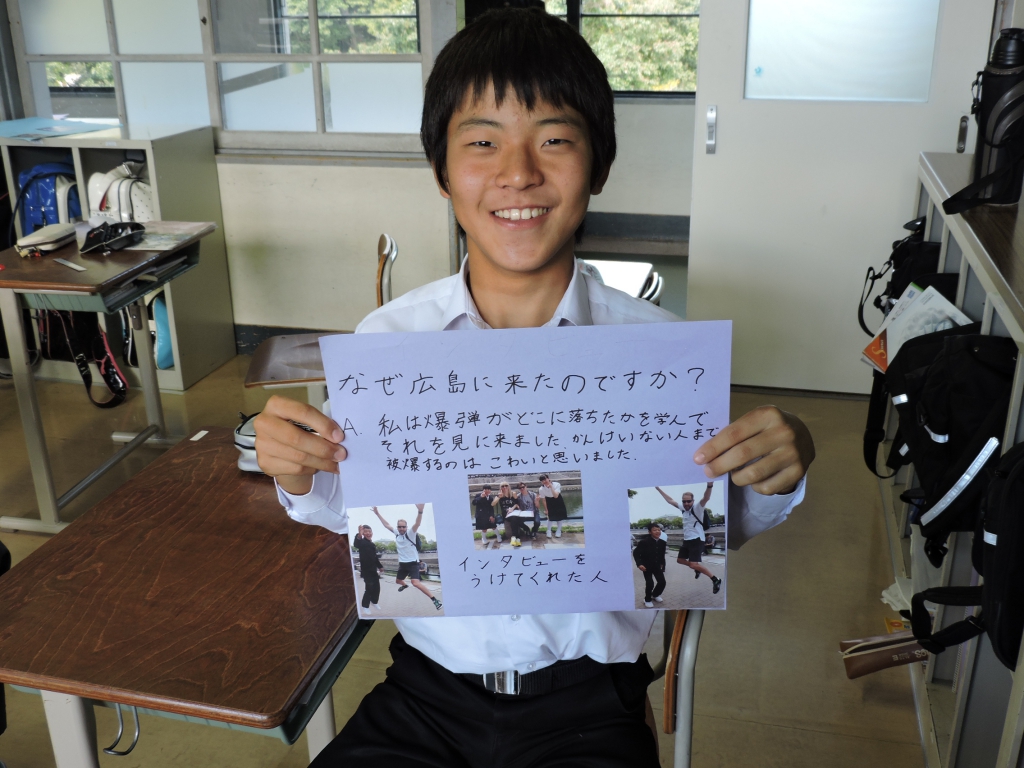 なぜ広島に来たのですか？
A. 私は爆弾がどこに落ちたかを学んで
それを見に来ました。かんけいない人まで
被爆するのは こわいと思いました.
インタビューを
うけてくれた人